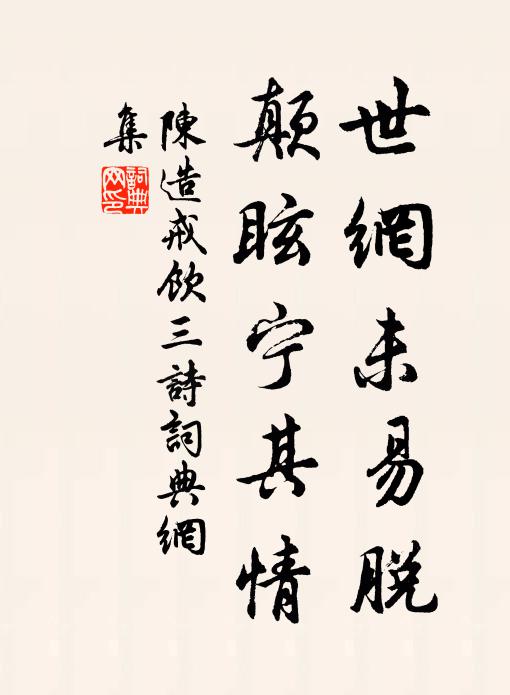 世網未易脫
顛眩宁其情
陳造戒飲三詩詞典網
集
詞典
网印